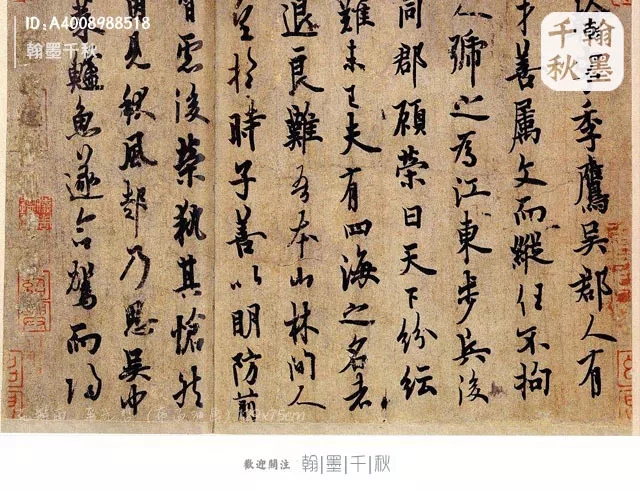 ID:A4008988518
翰墨千秋
翰墨
千秋
季鷹吳郡人有
才善属文而縱任不拘
人號之為江東步兵後
同郡顧榮曰天下紛紜
難未已夫有四海之名者
退良難吾本山林間人
望於時子善以明防前
智慮後榮執其愴然
因見秋風起乃思吳中
菜鱸魚遂命駕而歸
歡迎關注 翰|墨|千|秋